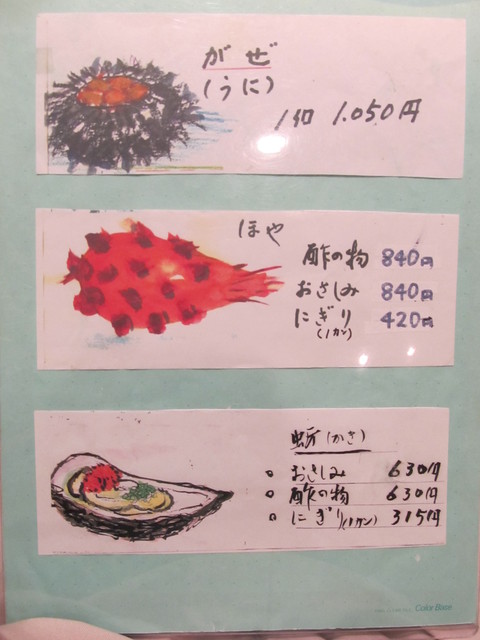 がぜ
(うに)
1ヶ 1.050円
ほや
酢の物 840円
おさしみ 840円
にぎり 420円
(1カン)
(かき)
おさしみ 630円
酢の物 630円
にぎり(1カン) 315円
Color Base